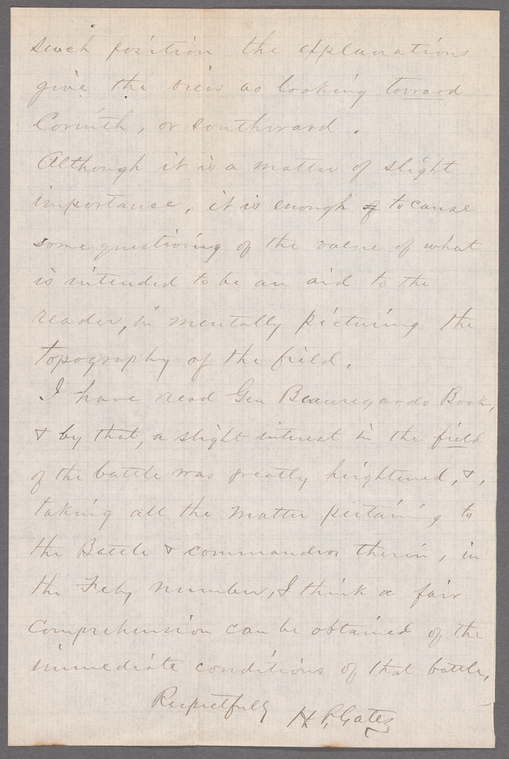 such position the explanations
give the view as looking toward
Corinth, or southward.
Although it is a matter of slight
importance, it is enough to cause
some questioning of the value of what
is intended to be an aid to the
reader, in mentally picturing the
topography of the field.
I have read Gen Beauregards Book,
& by that, a slight interest in the field
of the battle was greatly heightened, &,
taking all the matter pertaining to
the Battle & commandrs therin, in
the Feby number, I think a fair
comprehension can be obtained of the
immediate conditions of that battle,
Respectfully H. P. Gates